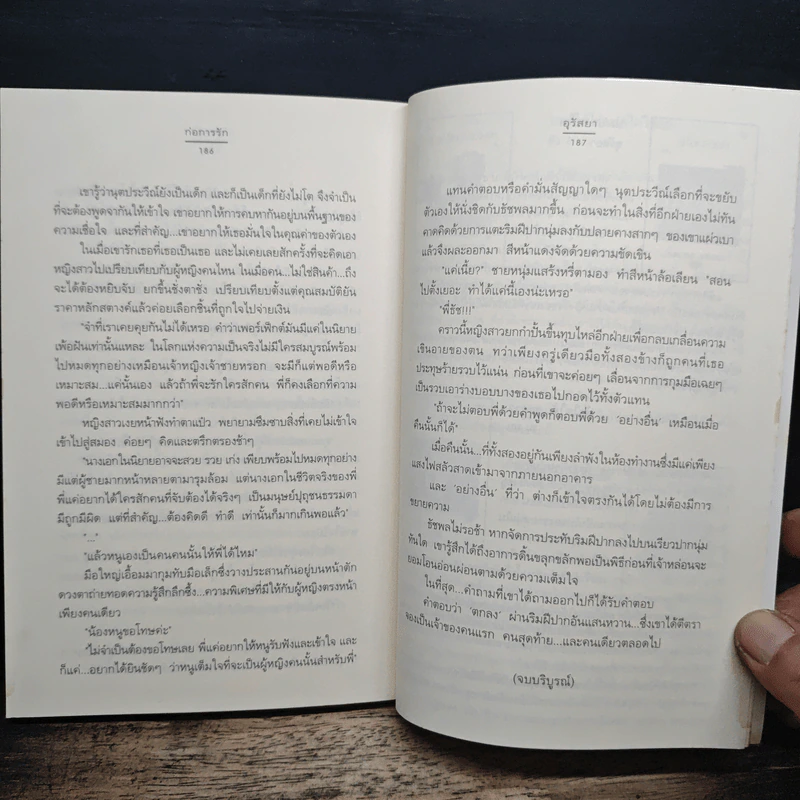 ก่อการรัก
186
เขารู้ว่านุตประวีณ์ยังเป็นเด็ก และก็เป็นเด็กที่ยังไม่โต จึงจำเป็น
ที่จะต้องพูดจากันให้เข้าใจ เขาอยากให้การคบหากันอยู่บนพื้นฐานของ
ความเชื่อใจ และที่สำคัญ...เขาอยากให้เธอมั่นใจในคุณค่าของตัวเอง
ในเมื่อเขารักเธอที่เธอเป็นเธอ และไม่เคยเลยสักครั้งที่จะคิดเอา
หญิงสาวไปเปรียบเทียบกับผู้หญิงคนไหน ในเมื่อคน...ไม่ใช่สินค้า...ถึง
จะได้ต้องหยิบจับ ยกขึ้นชั่งตาชั่ง เปรียบเทียบตั้งแต่คุณสมบัติยัน
ราคาหลักสตางค์แล้วค่อยเลือกชิ้นที่ถูกใจไปจ่ายเงิน
"จำที่เราเคยคุยกันไม่ได้เหรอ คำว่าเพอร์เฟ็กต์มันมีแค่ในนิยาย
เพ้อฝันเท่านั้นแหละ ในโลกแห่งความเป็นจริงไม่มีใครสมบูรณ์พร้อม
ไปหมดทุกอย่างเหมือนเจ้าหญิงเจ้าชายหรอก จะมีก็แต่พอดีหรือ
เหมาะสม...แค่นั้นเอง แล้วถ้าพี่จะรักใครสักคน พี่ก็คงเลือกที่ความ
พอดีหรือเหมาะสมมากกว่า"
หญิงสาวเงยหน้าฟังทำตาแป๋ว พยายามซึมซาบสิ่งที่เคยไม่เข้าใจ
เข้าไปสู่สมอง ค่อยๆ คิดและตรึกตรองช้าๆ
"นางเอกในนิยายอาจจะสวย รวย เก่ง เพียบพร้อมไปหมดทุกอย่าง
มีแต่ผู้ชายมากหน้าหลายตามารุมล้อม แต่นางเอกในชีวิตจริงของพี่
พี่แค่อยากได้ใครสักคนที่จับต้องได้จริงๆ เป็นมนุษย์ปุถุชนธรรมดา
มีถูกมีผิด แต่ที่สำคัญ...ต้องคิดดี ทำดี เท่านั้นก็มากเกินพอแล้ว"
"..."
"แล้วหนูเองเป็นคนคนนั้นให้พี่ได้ไหม"
มือใหญ่เอื้อมมากุมทับมือเล็กซึ่งวางประสานกันอยู่บนหน้าตัก
ดวงตาถ่ายทอดความรู้สึกลึกซึ้ง...ความพิเศษที่มีให้กับผู้หญิงตรงหน้า
เพียงคนเดียว
"น้องหนูขอโทษค่ะ"
"ไม่จำเป็นต้องขอโทษเลย พี่แค่อยากให้หนูรับฟังและเข้าใจ และ
ก็แค่...อยากได้ยินชัดๆ ว่าหนูเต็มใจที่จะเป็นผู้หญิงคนนั้นสำหรับพี่"
อุรัสยา
187
แทนคำตอบหรือคำมั่นสัญญาใดๆ นุตประวีณ์เลือกที่จะขยับ
ตัวเองให้นั่งชิดกับธัชพลมากขึ้น ก่อนจะทำในสิ่งที่อีกฝ่ายเองไม่ทัน
คาดคิดด้วยการแตะริมฝีปากนุ่มลงกับปลายคางสากๆ ของเขาแผ่วเบา
แล้วจึงผละออกมา สีหน้าแดงจัดด้วยความขัดเขิน
"แค่เนี้ย?" ชายหนุ่มแสร้งหรี่ตามอง ทำสีหน้าล้อเลียน "สอน
ไปตั้งเยอะ ทำได้แค่นี้เองน่ะเหรอ"
"พี่ธัช!!!"
คราวนี้หญิงสาวยกกำปั้นขึ้นทุบไหล่อีกฝ่ายเพื่อกลบเกลื่อนความ
เขินอายของตน ทว่าเพียงครู่เดียวมือทั้งสองข้างก็ถูกคนที่เธอ
ประทุษร้ายรวบไว้แน่น ก่อนที่เขาจะค่อยๆ เลื่อนจากการกุมมือเฉยๆ
เป็นรวบเอาร่างบอบบางของเธอไปกอดไว้ทั้งตัวแทน
"ถ้าจะไม่ตอบพี่ด้วยคำพูดก็ตอบพี่ด้วย 'อย่างอื่น' เหมือนเมื่อ
คืนนั้นก็ได้"
เมื่อคืนนั้น...ที่ทั้งสองอยู่กันเพียงลำพังในห้องทำงานซึ่งมีแค่เพียง
แสงไฟสลัวสาดเข้ามาจากภายนอกอาคาร
และ 'อย่างอื่น' ที่ว่า ต่างก็เข้าใจตรงกันได้โดยไม่ต้องมีการ
ขยายความ
ธัชพลไม่รอช้า หากจัดการประทับริมฝีปากลงไปบนเรียวปากนุ่ม
ทันใด เขารู้สึกได้ถึงอาการตื่นขลุกขลักพอเป็นพิธีก่อนที่เจ้าหล่อนจะ
ยอมโอนอ่อนผ่อนตามด้วยความเต็มใจ
ในที่สุด...คำถามที่เขาได้ถามออกไปก็ได้รับคำตอบ
คำตอบว่า 'ตกลง' ผ่านริมฝีปากอันแสนหวาน...ซึ่งเขาได้ตีตรา
จองเป็นเจ้าของคนแรก คนสุดท้าย...และคนเดียวตลอดไป
(จบบริบูรณ์)